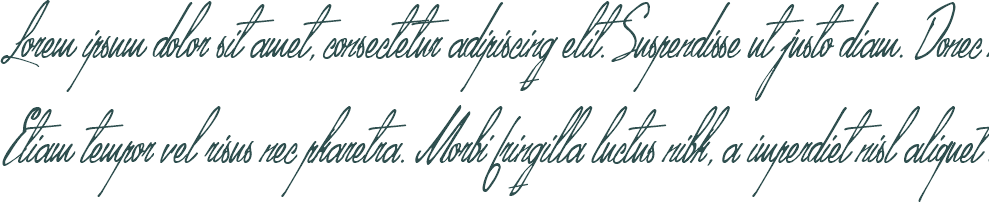 Lorem ipsum dolor sit amet, consectetur adipiscing elit. Suspendisse ut justo diam. Donec
Etiam tempor vel risus nec pharetra. Morbi fringilla luctus nibh, a imperdiet nisl aliquet